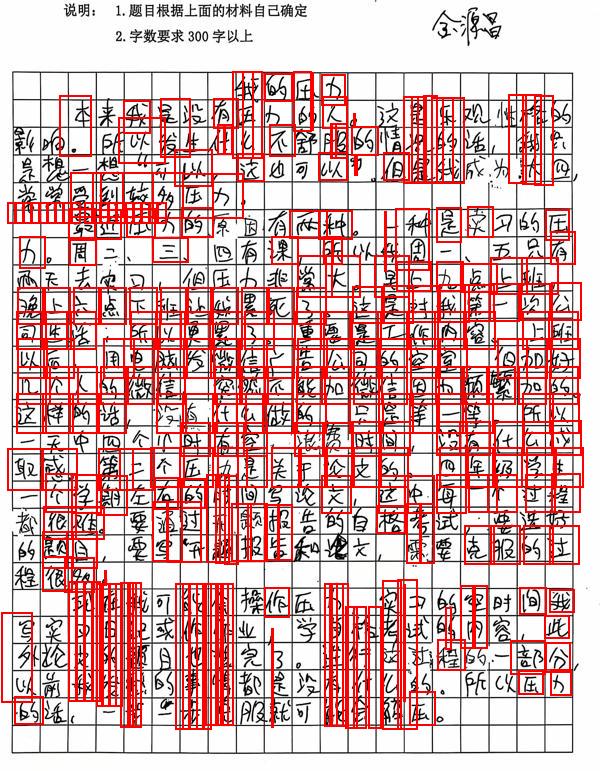 说明： 1.题目根据上面的材料自己确定
2.字数要求 300 字以上
金源昌
我的压力
本来我是没有压力的人。这是乐观性格的
影响。所以发生什么不舒服的情况的话，我总
是想一想可以，这也可以。但是我成为大四，
常常受到较多压力。
最近压力的原因有两种。一种是实习的压
力。周二、三、四有课，所以我周一、五只有
两天去实习。但压力非常大。早上九点上班，
晚上六点下班让我累死了。这是对我第一次公
司生活，所以更累了。重要是工作内容。上班
以后，用电脑发微信广告公司的空室。但加好
几个人的微信，突然不能加微信因为频繁加的。
这样的话，没有什么做的，只是等一等，所以
一天中四个小时有空，浪费时间，没有什么成
取感。第二个压力是关于论文的。四年级学生
一个学期左右的时间写论文，这中再个过程
都很难。要通过开题报告的自格考试，要选好
的题目，要写开题报告和论文，需要克服的过
程很多。
我在可能操作压力，实习的空时间我
写实习日记或作作业，学习考试的内容，此
外论文的题目也定完了。进行这过程的一部分，
以前我发愁的事情都是没有什么的。所以压力
的话，一步一步克服就可能会解压。